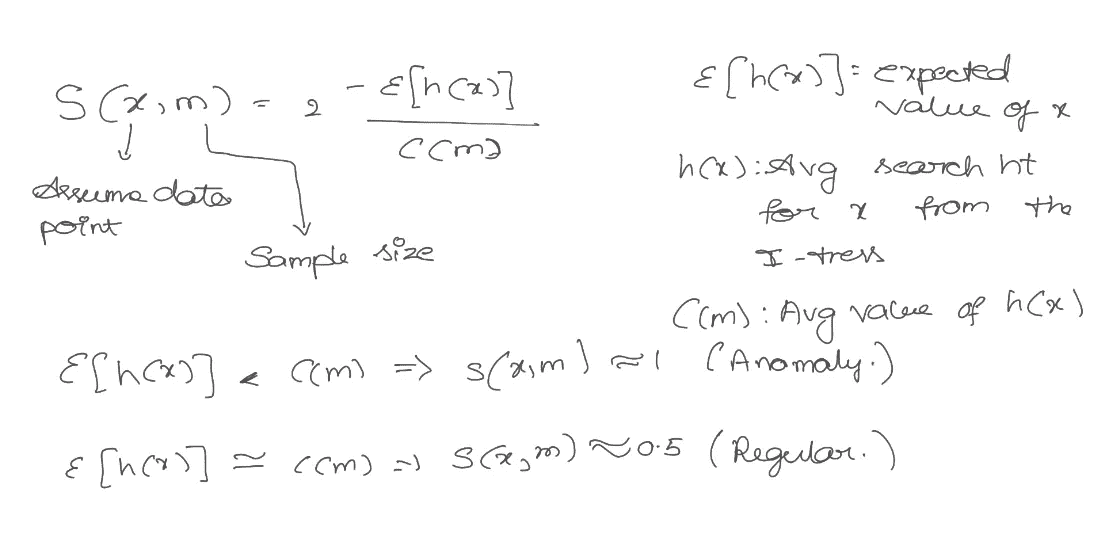 S(x,m) = 2 - E[h(x)]
C(m)
Assume data
point
Sample size
E[h(x)] = expected
value of x
h(x): Avg search ht
for x from the
I-tress
C(m): Avg value of h(x)
E[h(x)] < C(m) => S(x,m) ≈ 1 (Anomaly.)
E[h(x)] ≃ C(m) => S(x,m) ≈ 0.5 (Regular.)